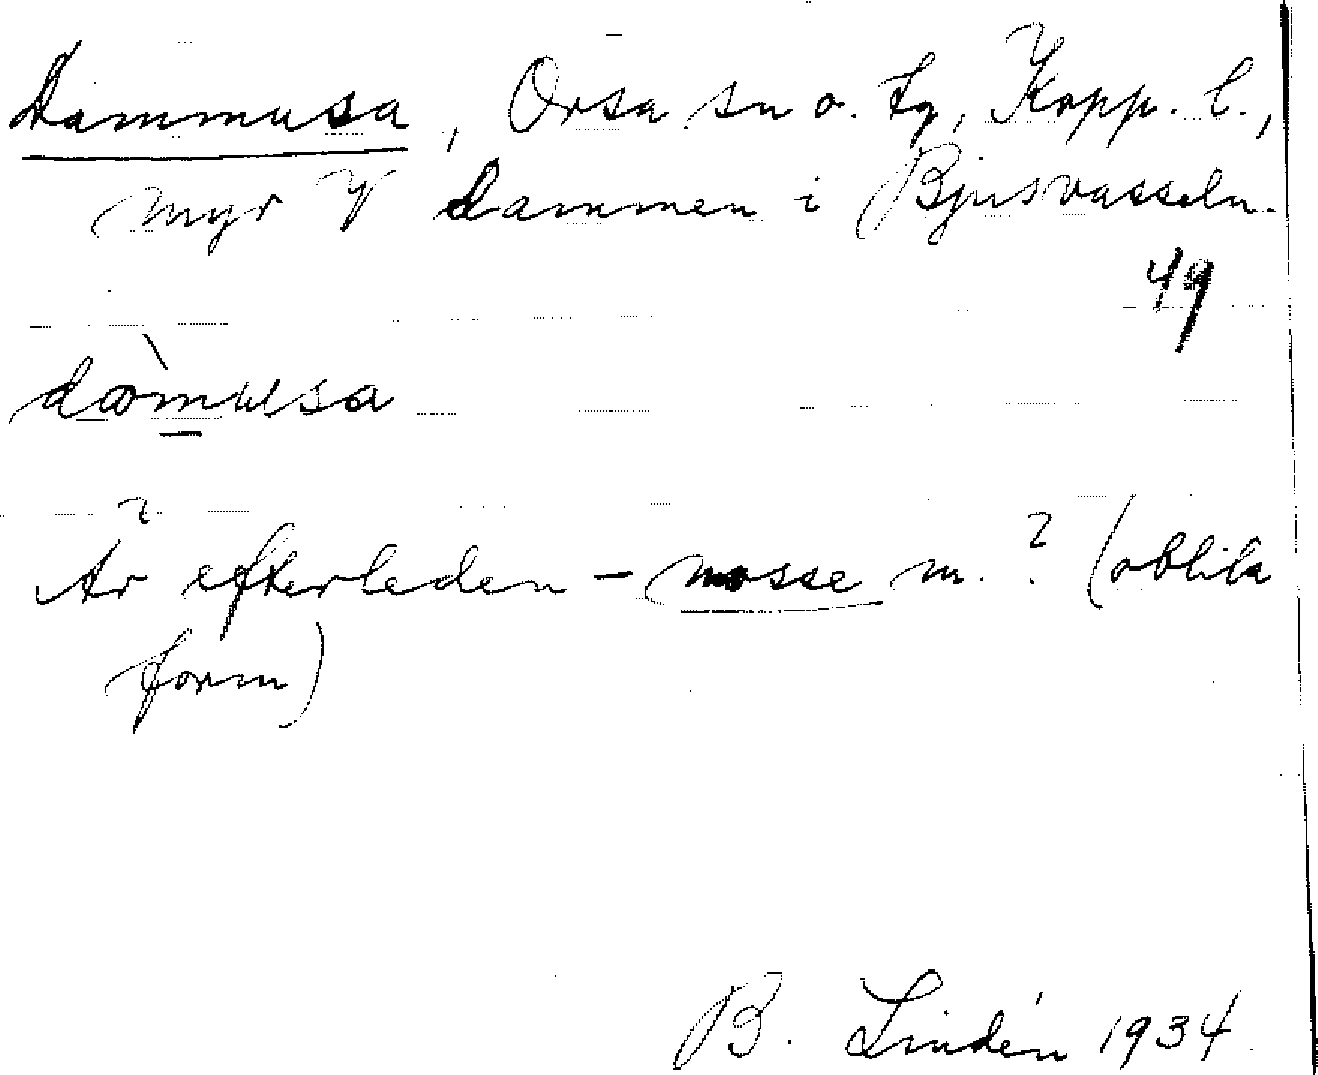 Dammusa, Orsa sn o. tg, Kopp. l.,
myr V Dammen i Bjusvasseln.
49
dòmusa
Är efterleden -mosse m.? (oblik
form)
B. Lindén 1934